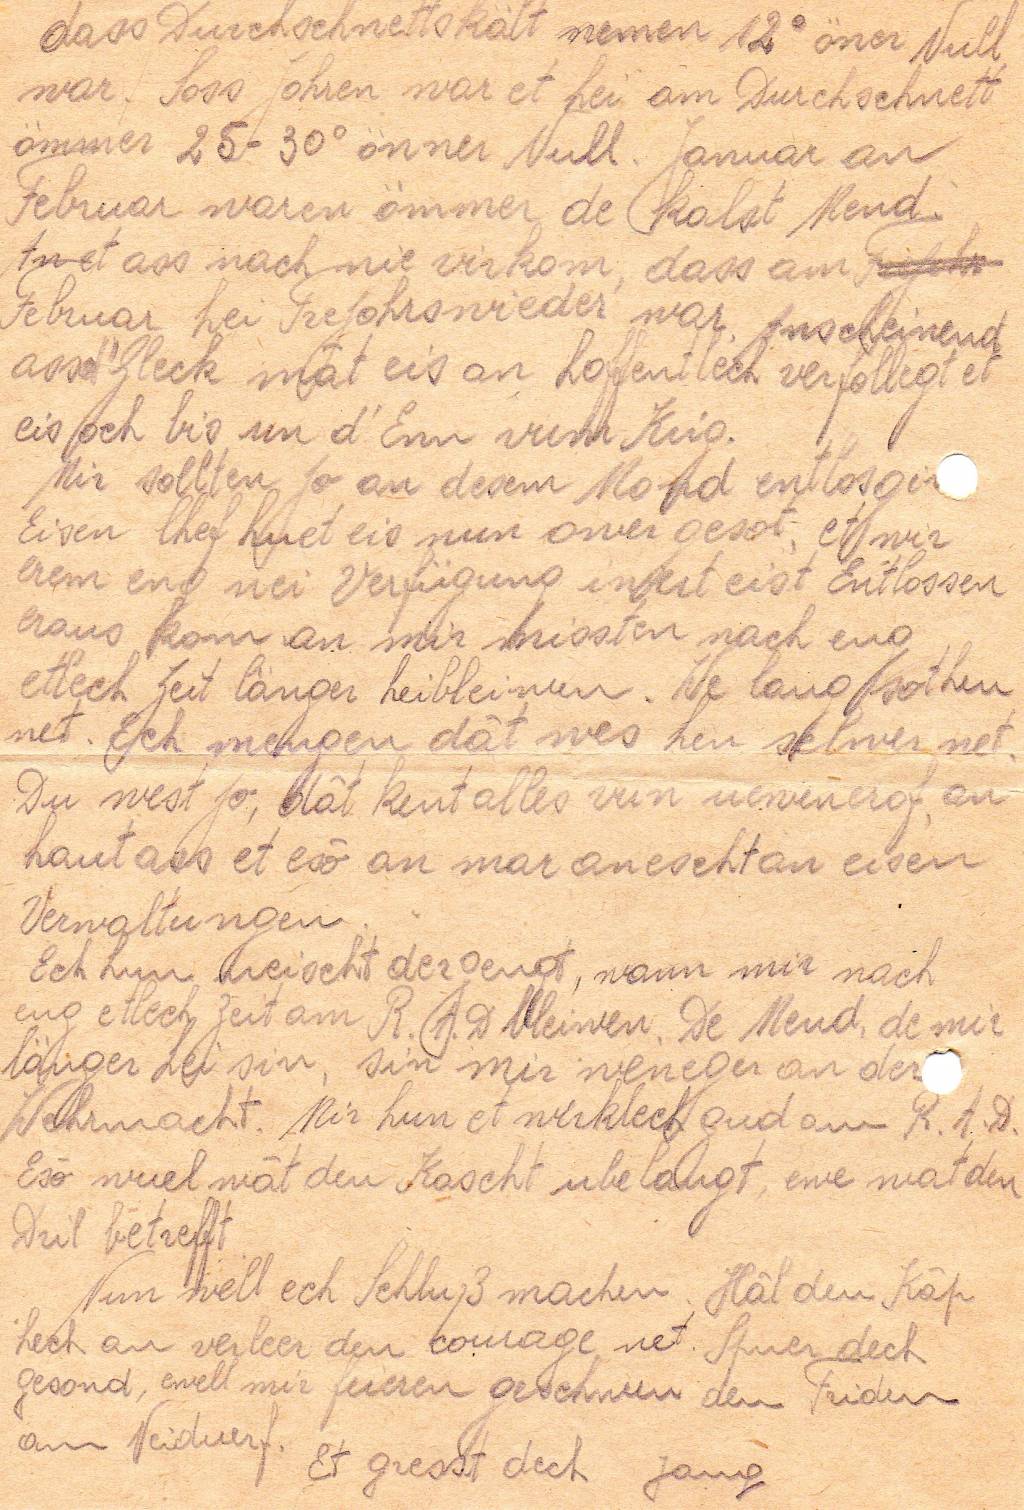 dass Durchschnettskält nemen 12° öner Null
war. Soss Johren war et hei am Durchschnett
ömmer 25-30° önner Null. Januar an
Februar waren ömmer de kalst Mend.
et ass nach nie virkom, dass am
Februar hei Frejohrswieder war. Anscheinend
ass d'Gleck mat eis an hoffentlech verfollegt et
eis och bis un d'Enn vum Krig.
Mir sollten jo an desem Mond entlosgin
Eisen Chef huet eis nun ower gesot, et wir
erem eng nei Verfügung iwert eist Entlossen
eraus kom an mir missten nach eng
etlech Zeit länger heibleiwen. We lang sot hen
net. Ech mengen dât wes hen selwer net.
Du west jo, dât kent alles vun uewenerof, an
haut ass et esō an mar anescht an eisen
Verwaltungen.
Ech hun neischt dergengt, wann mir nach
eng etlech Zeit am R.A.D bleiwen. De Mend, de mir
länger hei sin, sin mir weneger an der
Wehrmacht. Mir hun et wirklech gud am R.A.D.
Esō wuel wât den Kascht ubelangt, ewe wat den
Dril betrefft
Nun well ech Schluß machen. Hâl den Kâp
hech an verleer den courage net. Spuer dech
gesond, ewell mir feieren geschwen den Friden
am Neiduerf.
Et gresst dech Jang